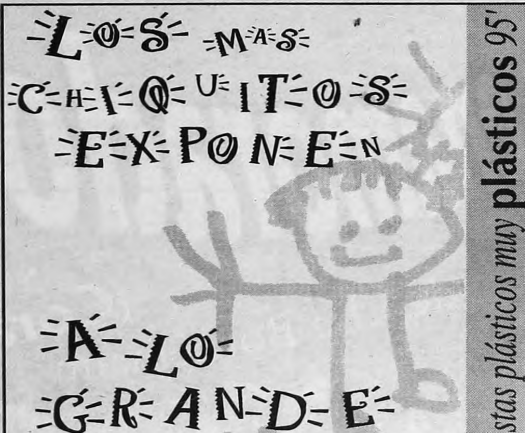 LOS MAS
CHIQUITOS
EXPONEN
A LO
GRANDE
stas plásticos muy plásticos 95'